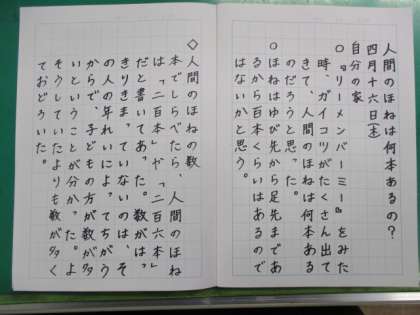 人間のほねは何本あるの？
四月十六日(木)
自分の家
○『リーメンバーミー』をみた
時、ガイコツがたくさん出て
きて、人間のほねは何本ある
のだろうと思った。
○ほねはゆびが先から足先まであ
るから百本くらいはあるので
はないかと思う。
◇人間のほねの数
本でしらべたら、人間のほね
は「二百本」や「二百六本」
だと書いてあった。数がは、
きりきま、ていないのは、そ
の人の年れいによ、てちがう
からで、子どもの方が数が多
いということが分か、た。よ
そうしていたよりも数が多く
ておどろいた。